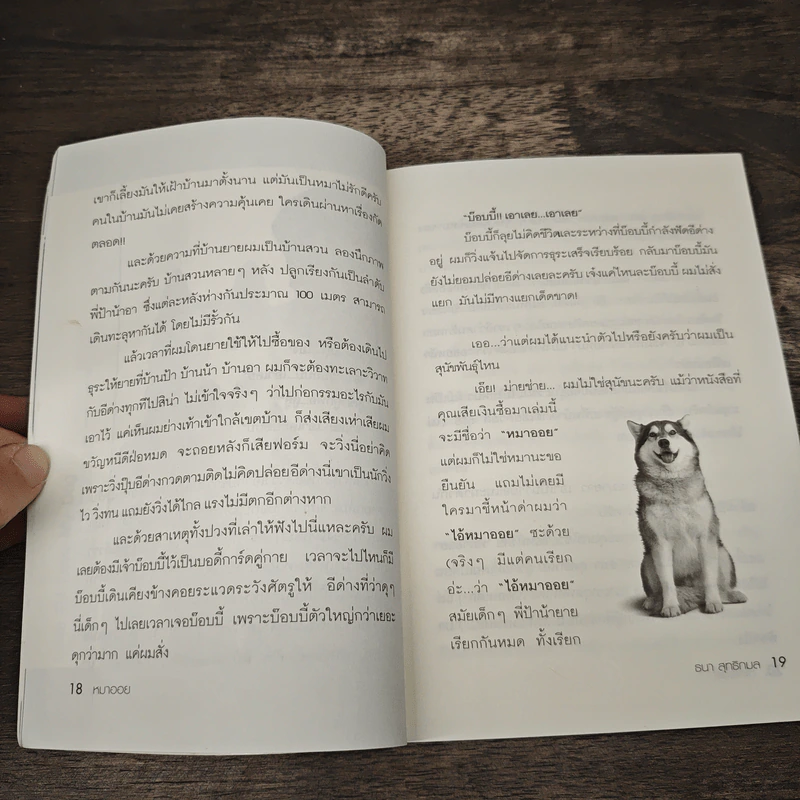 เขาก็เลี้ยงมันให้เฝ้าบ้านมาตั้งนาน แต่มันเป็นหมาไม่รักดีครับ
คนในบ้านมันไม่เคยสร้างความคุ้นเคย ใครเดินผ่านหาเรื่องกัด
ตลอด!!
และด้วยความที่บ้านยายผมเป็นบ้านสวน ลองนึกภาพ
ตามกันนะครับ บ้านสวนหลายๆ หลัง ปลูกเรียงกันเป็นลำดับ
พี่ป้าน้าอา ซึ่งแต่ละหลังห่างกันประมาณ 100 เมตร สามารถ
เดินทะลุหากันได้ โดยไม่มีรั้วกัน
แล้วเวลาที่ผมโดนยายใช้ให้ไปซื้อของ หรือต้องเดินไป
ธุระให้ยายที่บ้านป้า บ้านน้า บ้านอา ผมก็จะต้องทะเลาะวิวาท
กับอีด่างทุกทีไปสิน่า ไม่เข้าใจจริงๆ ว่าไปก่อกรรมอะไรกับมัน
เอาไว้ แค่เห็นผมย่างเท้าเข้าใกล้เขตบ้าน ก็ส่งเสียงเห่าเสียผม
ขวัญหนีดีฝ่อหมด จะถอยหลังก็เสียฟอร์ม จะวิ่งนี่อย่าคิด
เพราะวิ่งปุ๊บอีด่างกวดตามติดไม่คิดปล่อยอีด่างนี่เขาเป็นนักวิ่ง
ไว วิ่งทน แถมยังวิ่งได้ไกล แรงไม่มีตกอีกต่างหาก
และด้วยสาเหตุทั้งปวงที่เล่าให้ฟังไปนี่แหละครับ ผม
เลยต้องมีเจ้าบ๊อบบี้ไว้เป็นบอดี้การ์ดคู่กาย เวลาจะไปไหนก็มี
บ๊อบบี้เดินเคียงข้างคอยระแวดระวังศัตรูให้ อีด่างที่ว่าดุๆ
นี่เด็กๆ ไปเลยเวลาเจอบ๊อบบี้ เพราะบ๊อบบี้ตัวใหญ่กว่าเยอะ
ดุกว่ามาก แค่ผมสั่ง
18 หมาออย
"บ๊อบบี้!! เอาเลย...เอาเลย"
บ๊อบบี้ก็ลุยไม่คิดชีวิตและระหว่างที่บ๊อบบี้กำลังฟัดอีด่าง
อยู่ ผมก็วิ่งแจ้นไปจัดการธุระเสร็จเรียบร้อย กลับมาบ๊อบบี้มัน
ยังไม่ยอมปล่อยอีด่างเลยละครับ เจ๋งแค่ไหนละบ๊อบบี้ ผมไม่สั่ง
แยก มันไม่มีทางแยกเด็ดขาด!
เออ...ว่าแต่ผมได้แนะนำตัวไปหรือยังครับว่าผมเป็น
สุนัขพันธุ์ไหน
เอ๊ย! ม่ายช่าย... ผมไม่ใช่สุนัขนะครับ แม้ว่าหนังสือที่
คุณเสียเงินซื้อมาเล่มนี้
จะมีชื่อว่า "หมาออย"
แต่ผมก็ไม่ใช่หมานะขอ
ยืนยัน แถมไม่เคยมี
ใครมาชี้หน้าด่าผมว่า
"ไอ้หมาออย" ซะด้วย
(จริงๆ มีแต่คนเรียก
อ่ะ...ว่า "ไอ้หมาออย"
สมัยเด็กๆ พี่ป้าน้ายาย
เรียกกันหมด ทั้งเรียก
ธนา สุทธิกมล 19